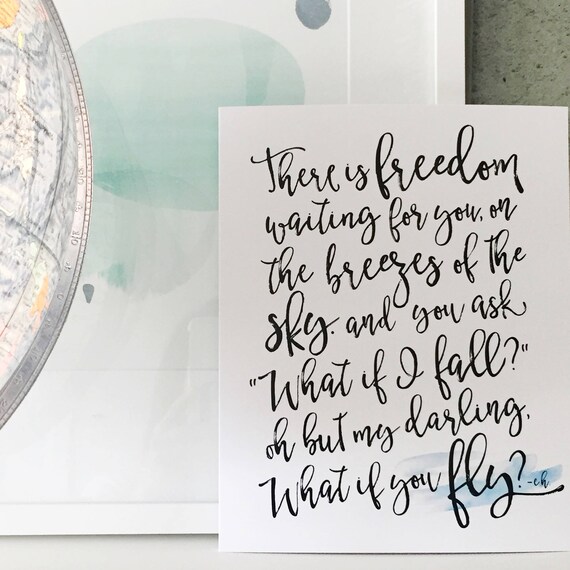 There is freedom
waiting for you, on
the breezes of the
sky. and you ask
"What if I fall?"
oh but my darling,
What if you fly? -eh